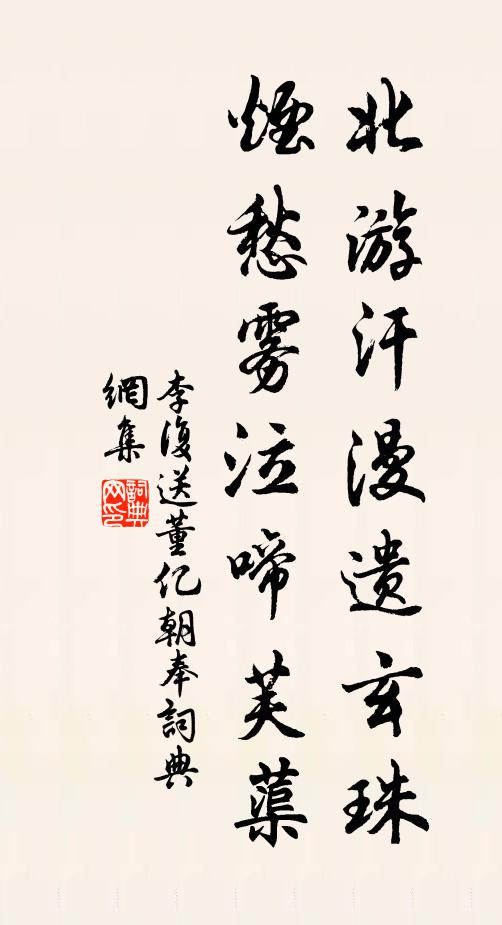 北游汗漫遗玄珠
煙愁雾泣啼芙蕖
李復送董亿朝奉詞典
網集
詞典
网印